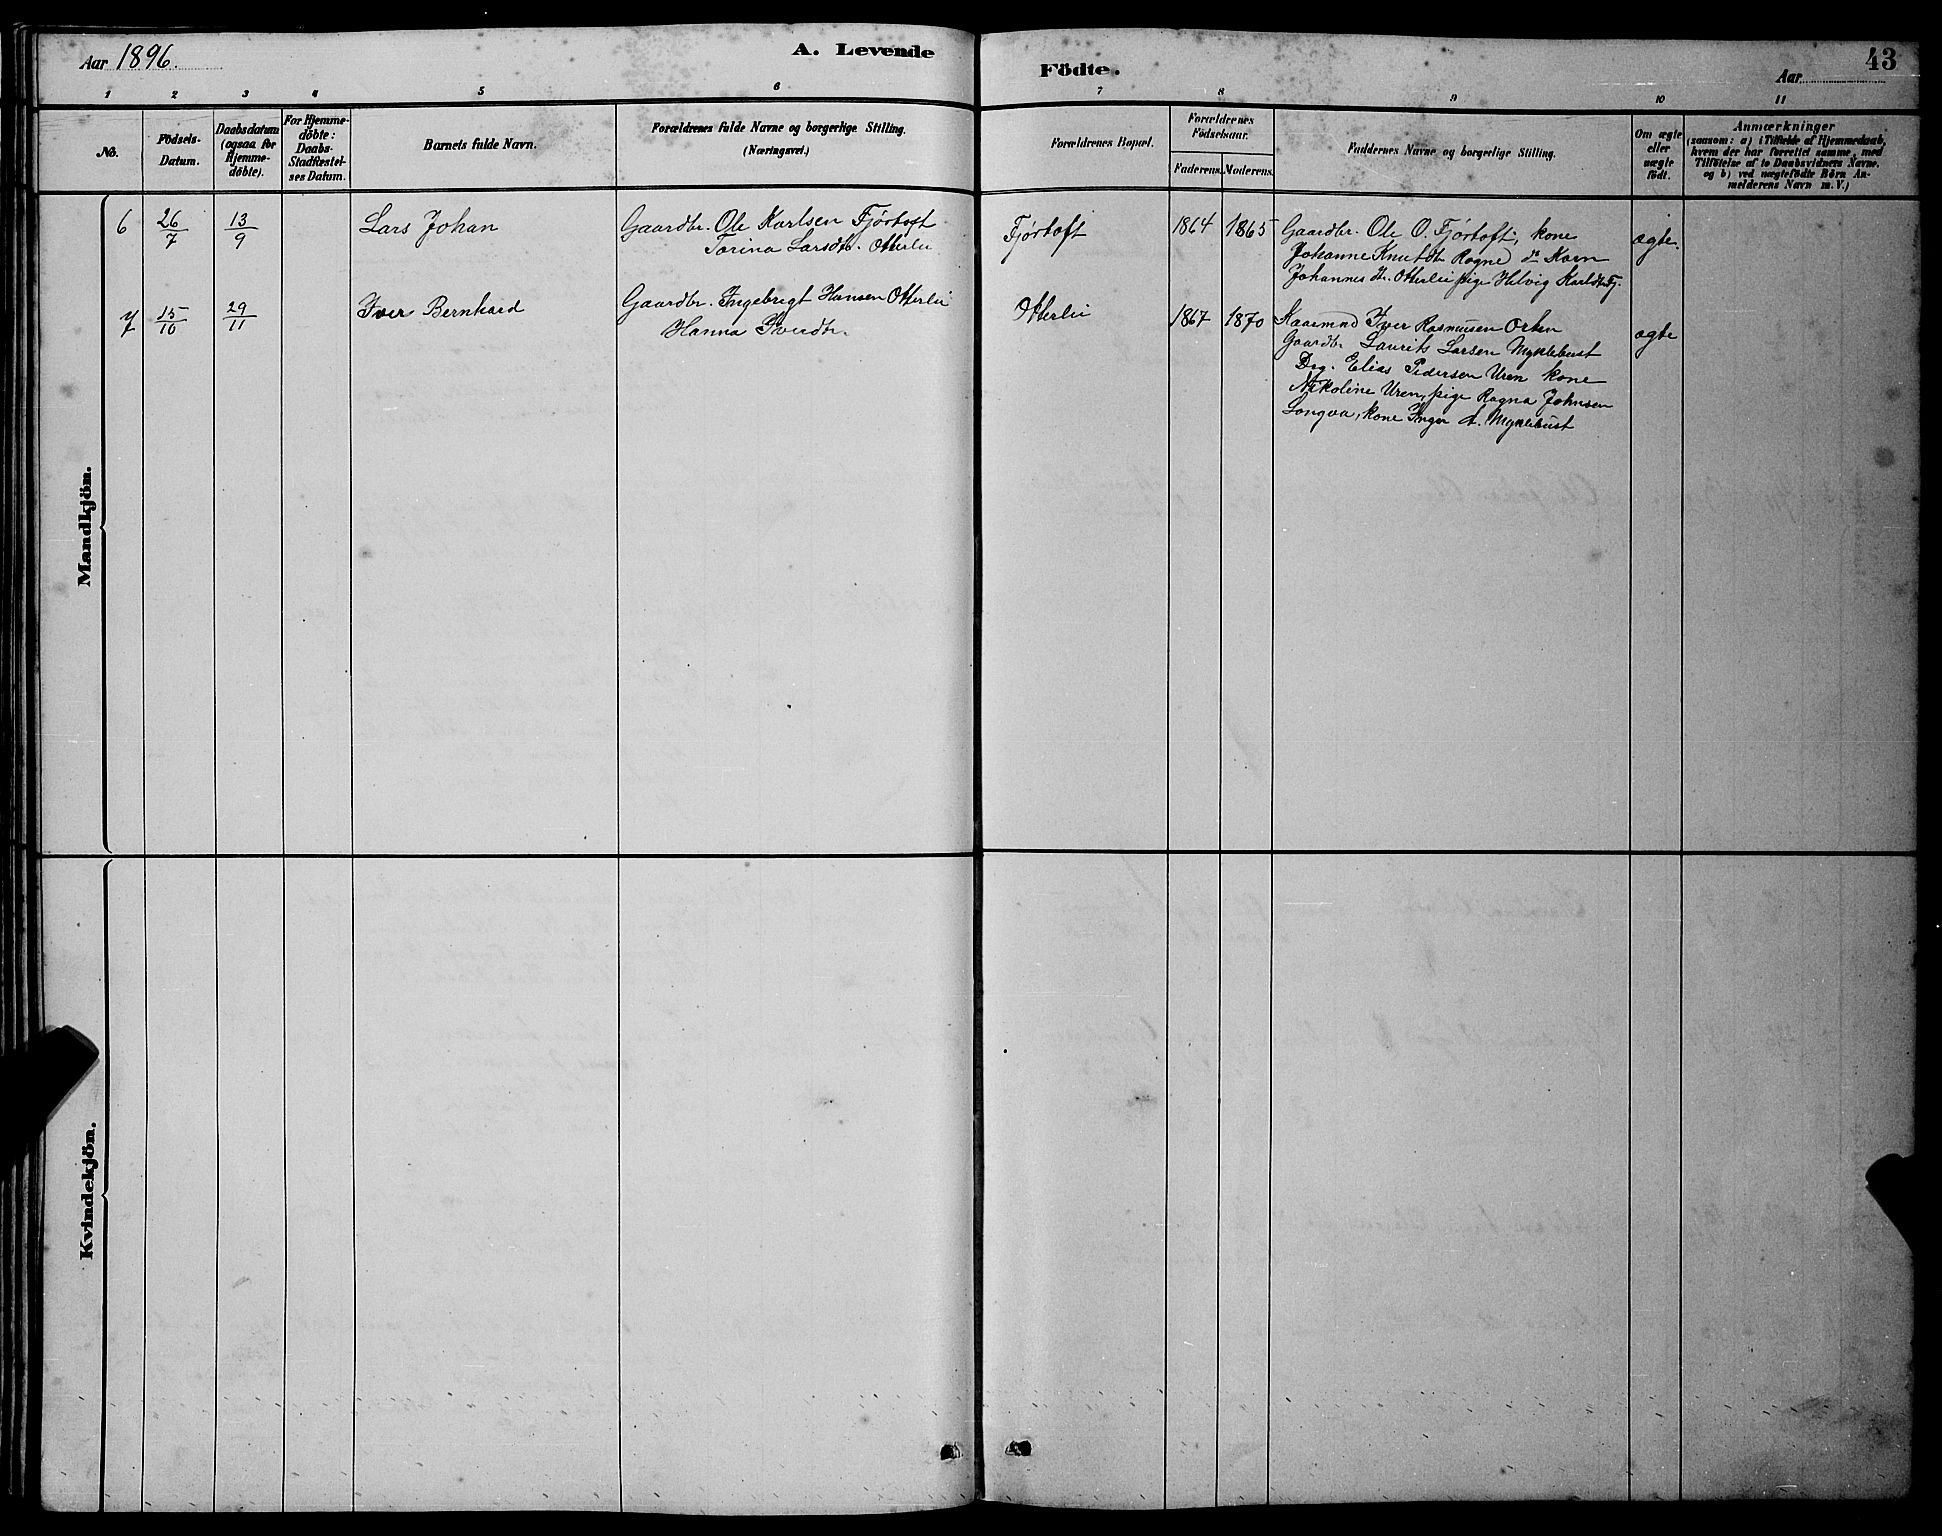 Aar 1896.
A. Levende
Födte.
Aar
43
1 2 3 4 5 6 7 8 9 10 11
No.
Födsels-
Datum.
Daabsdatum
(ogsaa for
Hjemme-
döbte).
For Hjemme-
döbte:
Daabs-
Stadfæstel-
ses Datum.
Barnets fulde Navn.
Forældrenes fulde Navne og borgerlige Stilling.
(Næringsvei.)
Forældrenes Bopæl.
Forældrenes
Födselsaar.
Faderens. Moderens.
Faddernes Navne og borgerlige Stilling.
Om ægte
eller
uægte
födt.
Anmærkninger
(saasom: a) i Tilfælde af Hjemmedaab,
hvem der har forrettet samme, med
Tilföielse af to Daabsvidners Navne,
og b) ved uægtefödte Börn An-
melderens Navn m. V.)
Mandkjön.
6 26/7 13/9 Lars Johan
Gaardbr. Ole Karlsen Fjørtoft
Torina Larsdtr. Otterlei
Fjørtoft 1864 1865
Gaardbr. Ole O. Fjørtoft, kone
Johanne Knutdtr Rogne do Karn
Johannes dtr. Otterlei pige Helvig Karldtr Fj.
ægte.
7 15/10 29/11 Iver Bernhard
Gaardbr. Ingebrigt Hansen Otterlei
Hanna Iverdtr.
Otterlei 1867 1870
Kaarmnd Iver Rasmusen Orten
Gaardbr Laurits Larsen Myklebust
Drg. Elias Pedersen Uren kone
Nikoline Uren, pige Ragna Johnsen
Longva, kone Inger d. Myklebust
ægte
Kvindekjön.